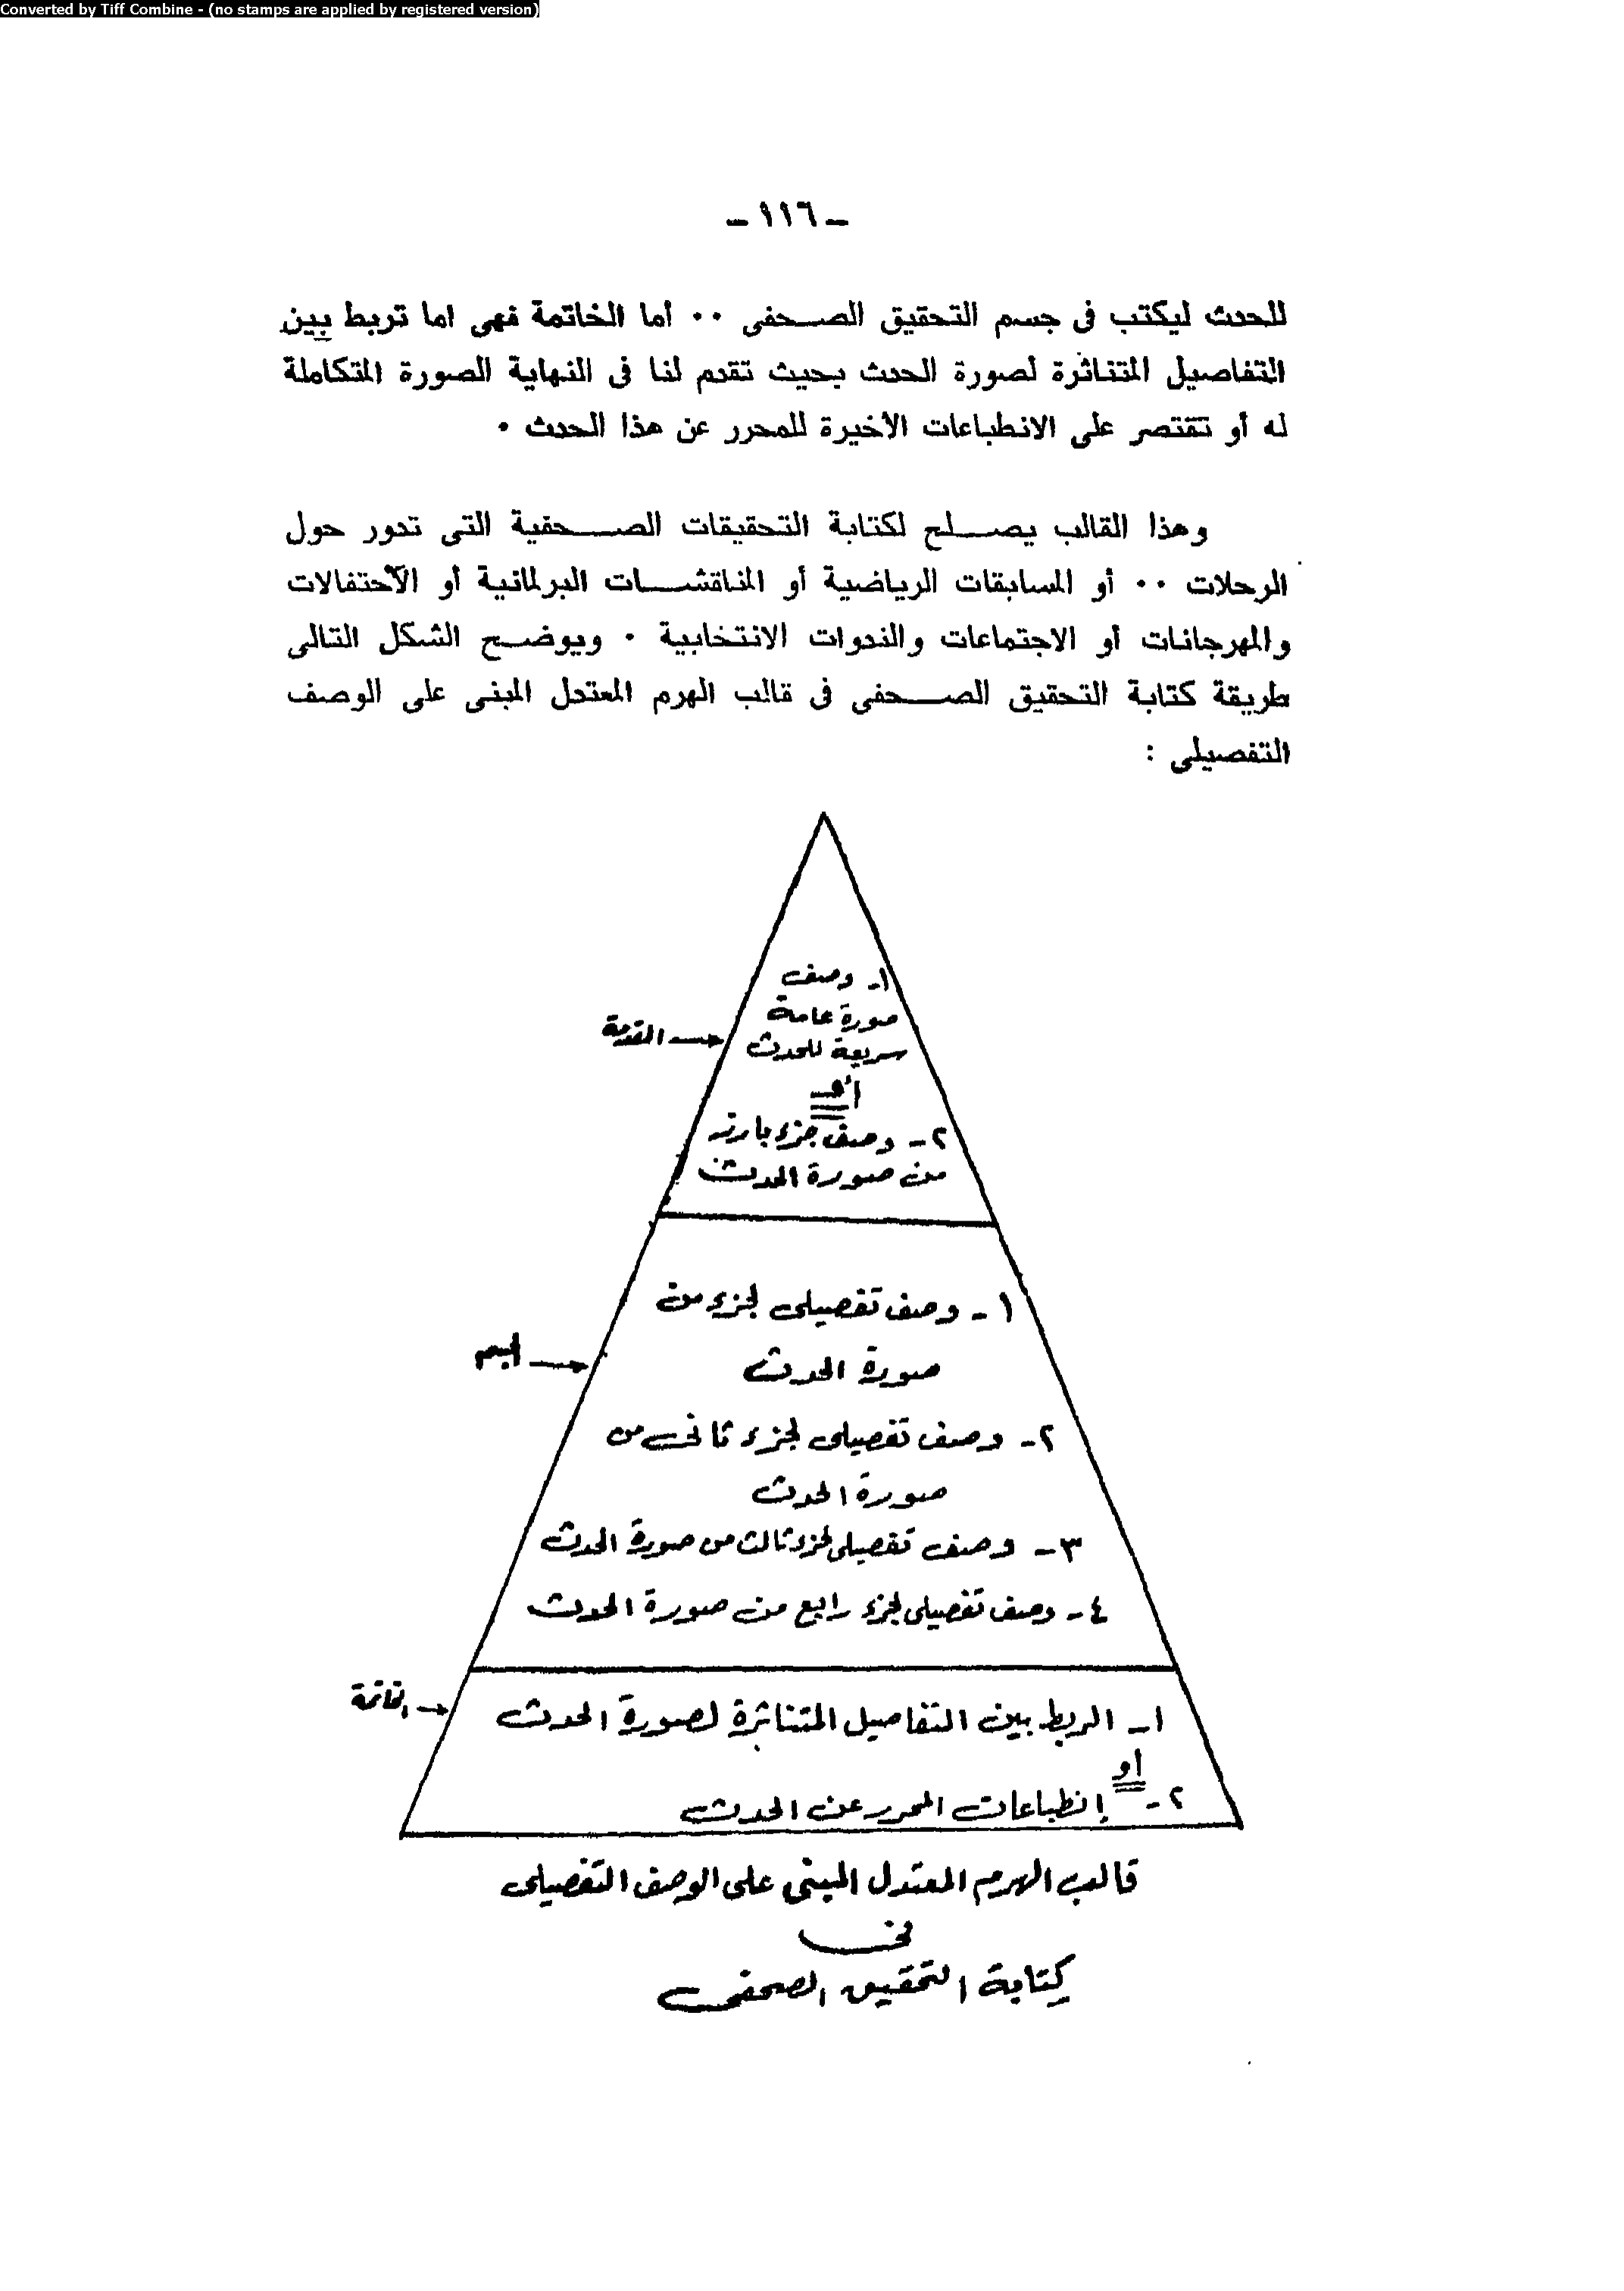 Converted by Tiff Combine - (no stamps are applied by registered version)
ـ ١١٦ ـ
للحدث ليكتب فى جسم التحقيق الصـحفى ٠٠ أما الخاتمة فهى اما تربط بين
التفاصيل المتناثرة لصورة الحدث بحيث تقدم لنا فى النهاية الصورة المتكاملة
له أو تقتصر على الانطباعات الأخيرة للمحرر عن هذا الحدث ٠
وهذا القالب يصـلح لكتابة التحقيقات الصـحفية التى تدور حول
الرحلات ٠٠ أو المسابقات الرياضية أو المناقشـات البرلمانية أو الأحتفالات
والمهرجانات أو الاجتماعات والندوات الانتخابية ٠ ويوضـح الشكل التالى
طريقة كتابة التحقيق الصـحفى فى قالب الهرم المعتدل المبنى على الوصف
التفصيلى :
١ـ وصف
صورة عامة
سريعة للحدث
المقدمة
أو
٢ـ وصف جزء بارز
من صورة الحدث
١ـ وصف تفصيلى لجزء من
صورة الحدث
الجسم
٢ـ وصف تفصيلى لجزء ثانى من
صورة الحدث
٣ـ وصف تفصيلى لجزء ثالث من صورة الحدث
٤ـ وصف تفصيلى لجزء رابع من صورة الحدث
الخاتمة
١ـ الربط بين التفاصيل المتناثرة لصورة الحدث
أو
٢ـ إنطباعات المحرر عن الحدث
قالب الهرم المعتدل المبنى على الوصف التفصيلى
فى
كتابة التحقيق الصحفى